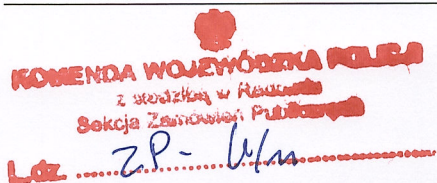 KOMENDA WOJEWÓDZKA POLICJI
z siedzibą w Radomiu
Sekcja Zamówień Publicznych
L.dz. ZP-